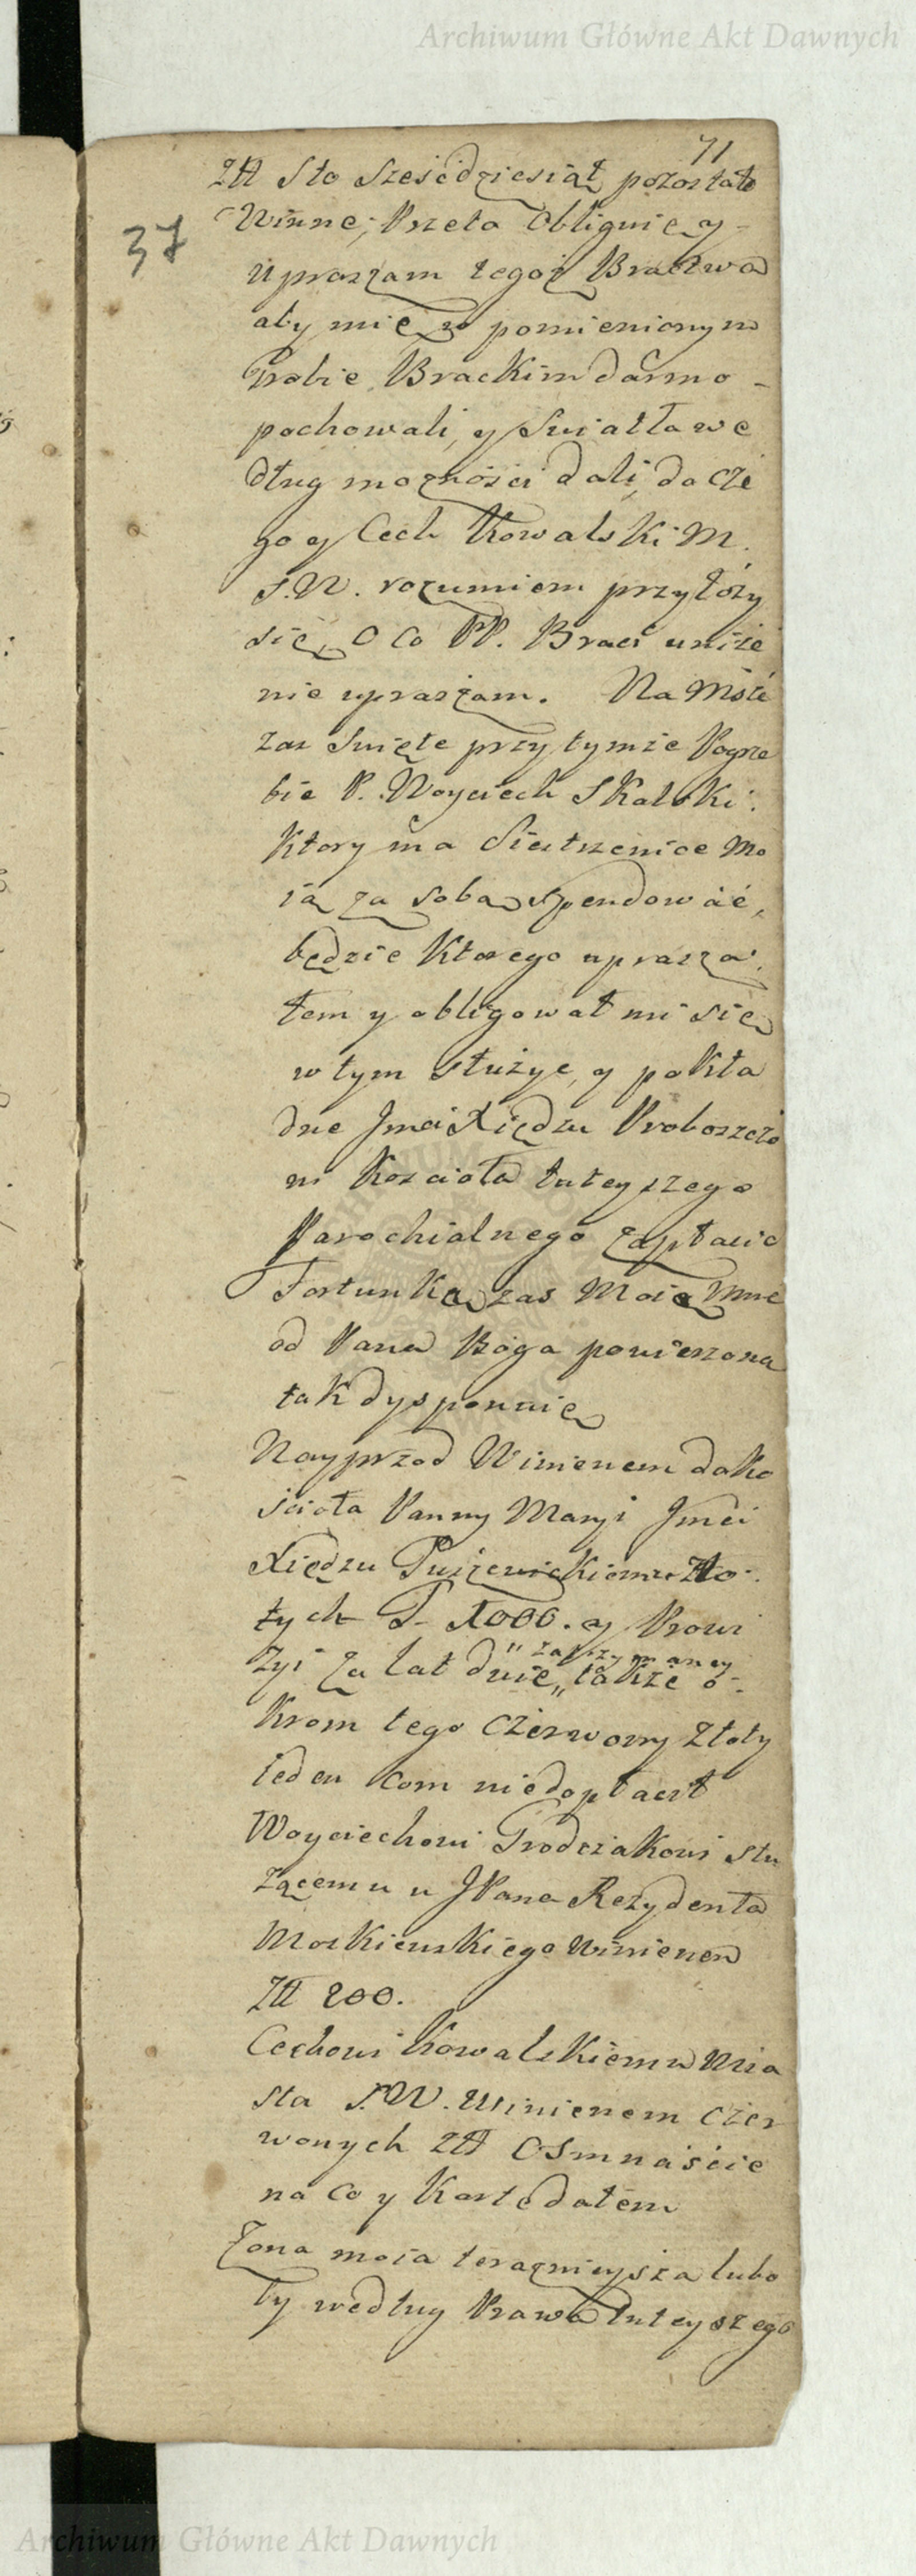 Archiwum Główne Akt Dawnych
71
Złł Sto Sześcdziesiąt pozostało
37
Winne; Przeto Obliguię y
upraszam tegoż Bractwa
aby mię w pomienionym
Grobie Brackim darmo
pochowali, y Swiatła we
dług mozności dali, do cze
go y Cech Kowalski M.
S.W. rozumiem przyłoży
się, O co PP. Braci uniże
nie upraszam. Na Msze
zas Swięte przy tymże Pogrze
bie P. Woyciech Skalski
Ktory ma Siestrzenice Mo
ią za sobą spendować,
będzie Ktorego uprasza
łem y obligował mi się
w tym słuzyc, y pokła
dne Jmci Xiędzu Proboszczo
wi Koscioła tuteyszego
Parochialnego zapłacic
Fortunkę zas Moię Mnie
od Pana Boga powierzoną
tak dysponuię
Nayprzod Winienem do Ko
ścioła Panny Maryi Jmci
Xiędzu Zło
tych P. 1000. y Prowi
zyi za lat dwie „ także o
„ zatrzymaney
Krom tego Czerwony Złoty
ieden com niedopłacił
Woyciechowi Grodziakowi słu
żącemu u JPana Rezydenta
Moskiewskiego Winienem
Złł 200.
Cechowi Kowalskiemu Mia
sta S.W. Winienem Czer
wonych Złł Osmnaście
na co y Kartę dałem
Zona moia teraznieysza lubo
by według Prawa tuteyszego
Archiwum Główne Akt Dawnych